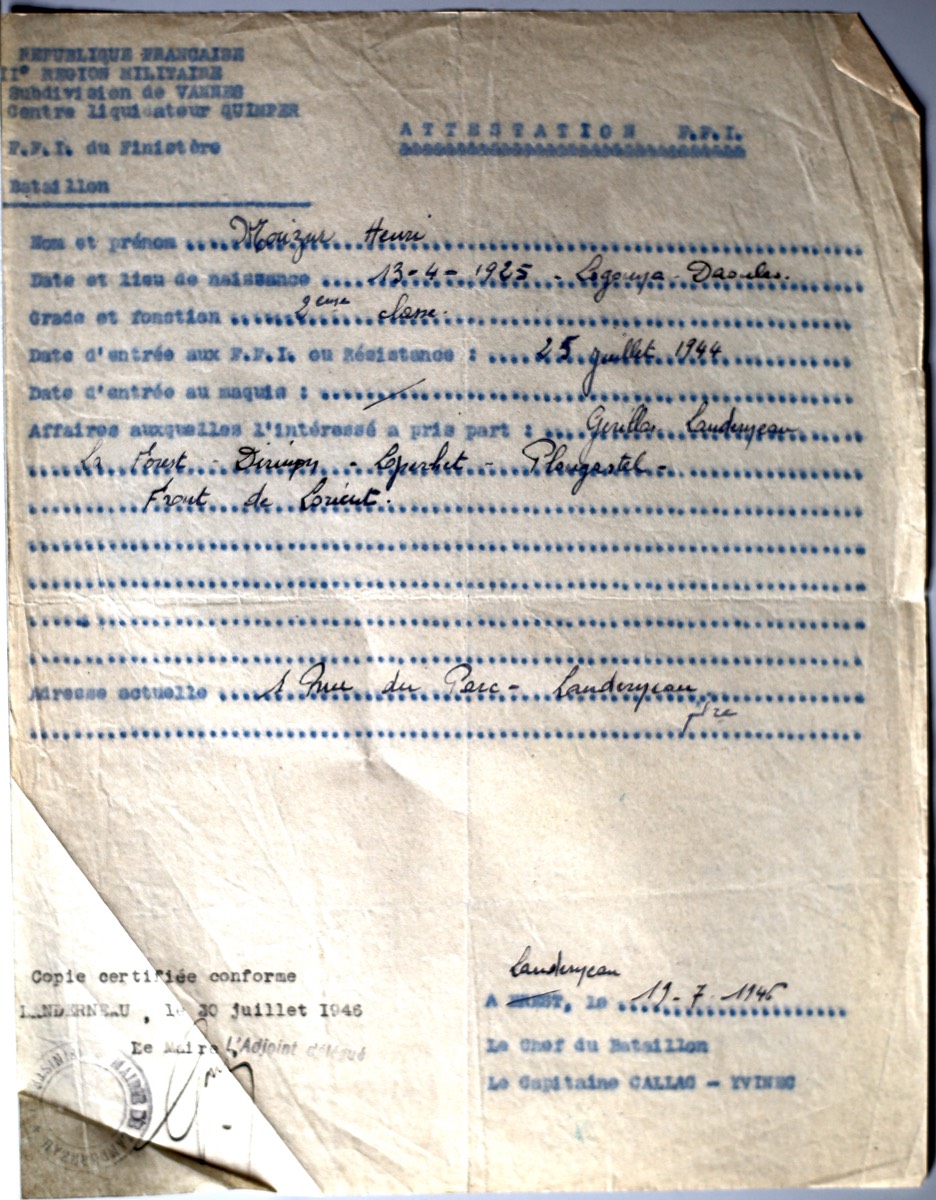 REPUBLIQUE FRANCAISE
II° REGION MILITAIRE
Subdivision de VANNES
Centre liquidateur QUIMPER
F.F.I. du Finistère
Bataillon
ATTESTATION F.F.I.
Nom et prénom Henri
Date et lieu de naissance 13-4-1925 - Logonna-Daoulas.
Grade et fonction 2ème classe.
Date d'entrée aux F.F.I. ou Résistance : 25 juillet 1944
Date d'entrée au maquis :
Affaires auxquelles l'intéressé a pris part : Landerneau
La Forest - Dirinon - Loperhet - Plougastel -
Front de Lorient.
Adresse actuelle 1 Rue du Parc - Landerneau
Copie certifiée conforme
LANDERNEAU, le 30 juillet 1946
Le Maire, L'Adjoint délégué
Landerneau
A BREST, le 19-7-1946
Le Chef du Bataillon
Le Capitaine CALLAC - YVINEC